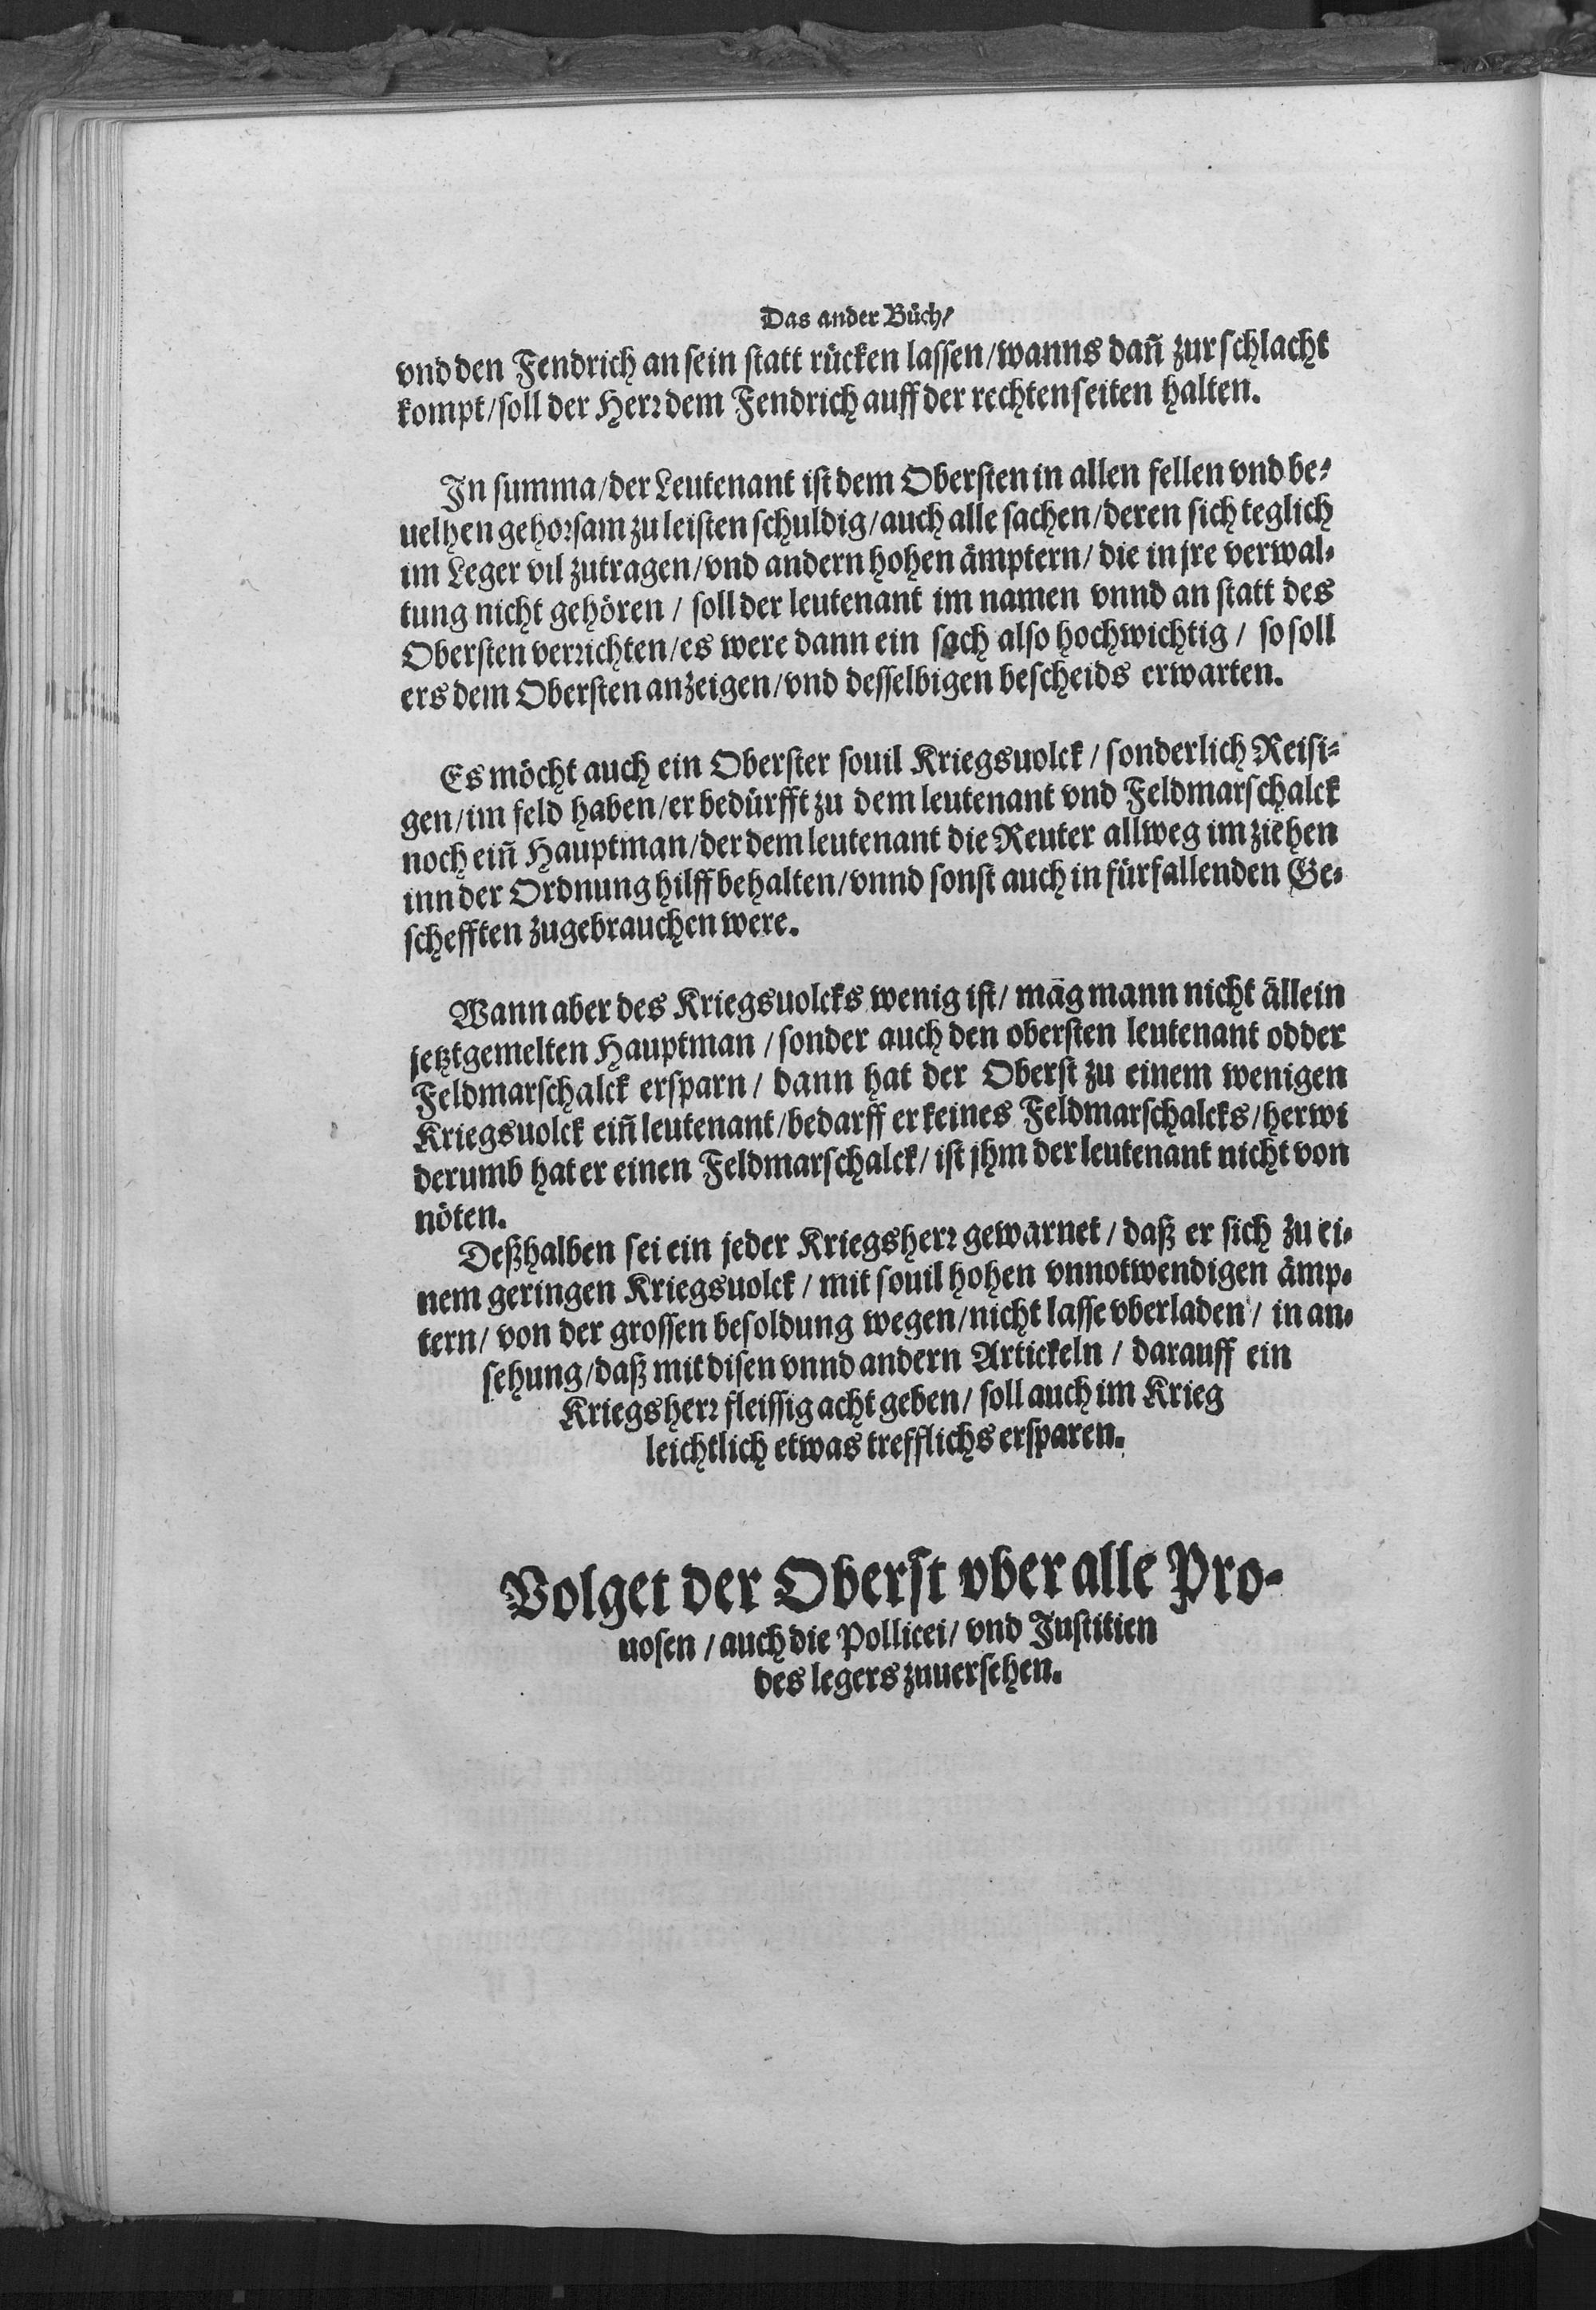 Das ander Bůch/
vnd den Fendrich an sein statt rücken lassen/wanns dañ zur schlacht
kompt/soll der Herr dem Fendrich auff der rechten seiten halten.
In summa/der Leutenant ist dem Obersten in allen fellen vnd be-
uelhen gehorsam zu leisten schuldig/auch alle sachen/deren sich teglich
im Leger vil zutragen/vnd andern hohen ämptern/die in jre verwal-
tung nicht gehören/ soll der leutenant im namen vnnd an statt des
Obersten verrichten/es were dann ein sach also hochwichtig/ so soll
ers dem Obersten anzeigen/vnd desselbigen bescheids erwarten.
Es möcht auch ein Oberster souil Kriegsuolck/sonderlich Reisi-
gen/im feld haben/er bedürfft zu dem leutenant vnd Feldmarschalck
noch eiñ Hauptman/der dem leutenant die Reuter allweg im ziehen
inn der Ordnung hilff behalten/vnnd sonst auch in fürfallenden Ge-
schefften zugebrauchen were.
Wann aber des Kriegsuolcks wenig ist/ mag mann nicht allein
jetztgemelten Hauptman/sonder auch den obersten leutenant odder
Feldmarschalck ersparn/ dann hat der Oberst zu einem wenigen
Kriegsuolck eiñ leutenant/bedarff er keines Feldmarschalcks/herwi
derumb hat er einen Feldmarschalck/ist jhm der leutenant nicht von
nöten.
Deßhalben sei ein jeder Kriegsherr gewarnet/daß er sich zu ei-
nem geringen Kriegsuolck/mit souil hohen vnnotwendigen ämp-
tern/von der grossen besoldung wegen/nicht lasse vberladen/ in an-
sehung/daß mit disen vnnd andern Artickeln/ darauff ein
Kriegsherr fleissig acht geben/soll auch im Krieg
leichtlich etwas trefflichs ersparen.
Volget der Oberst vber alle Pro-
uosen/auch die Pollicei/vnd Justitien
des legers zuuersehen.